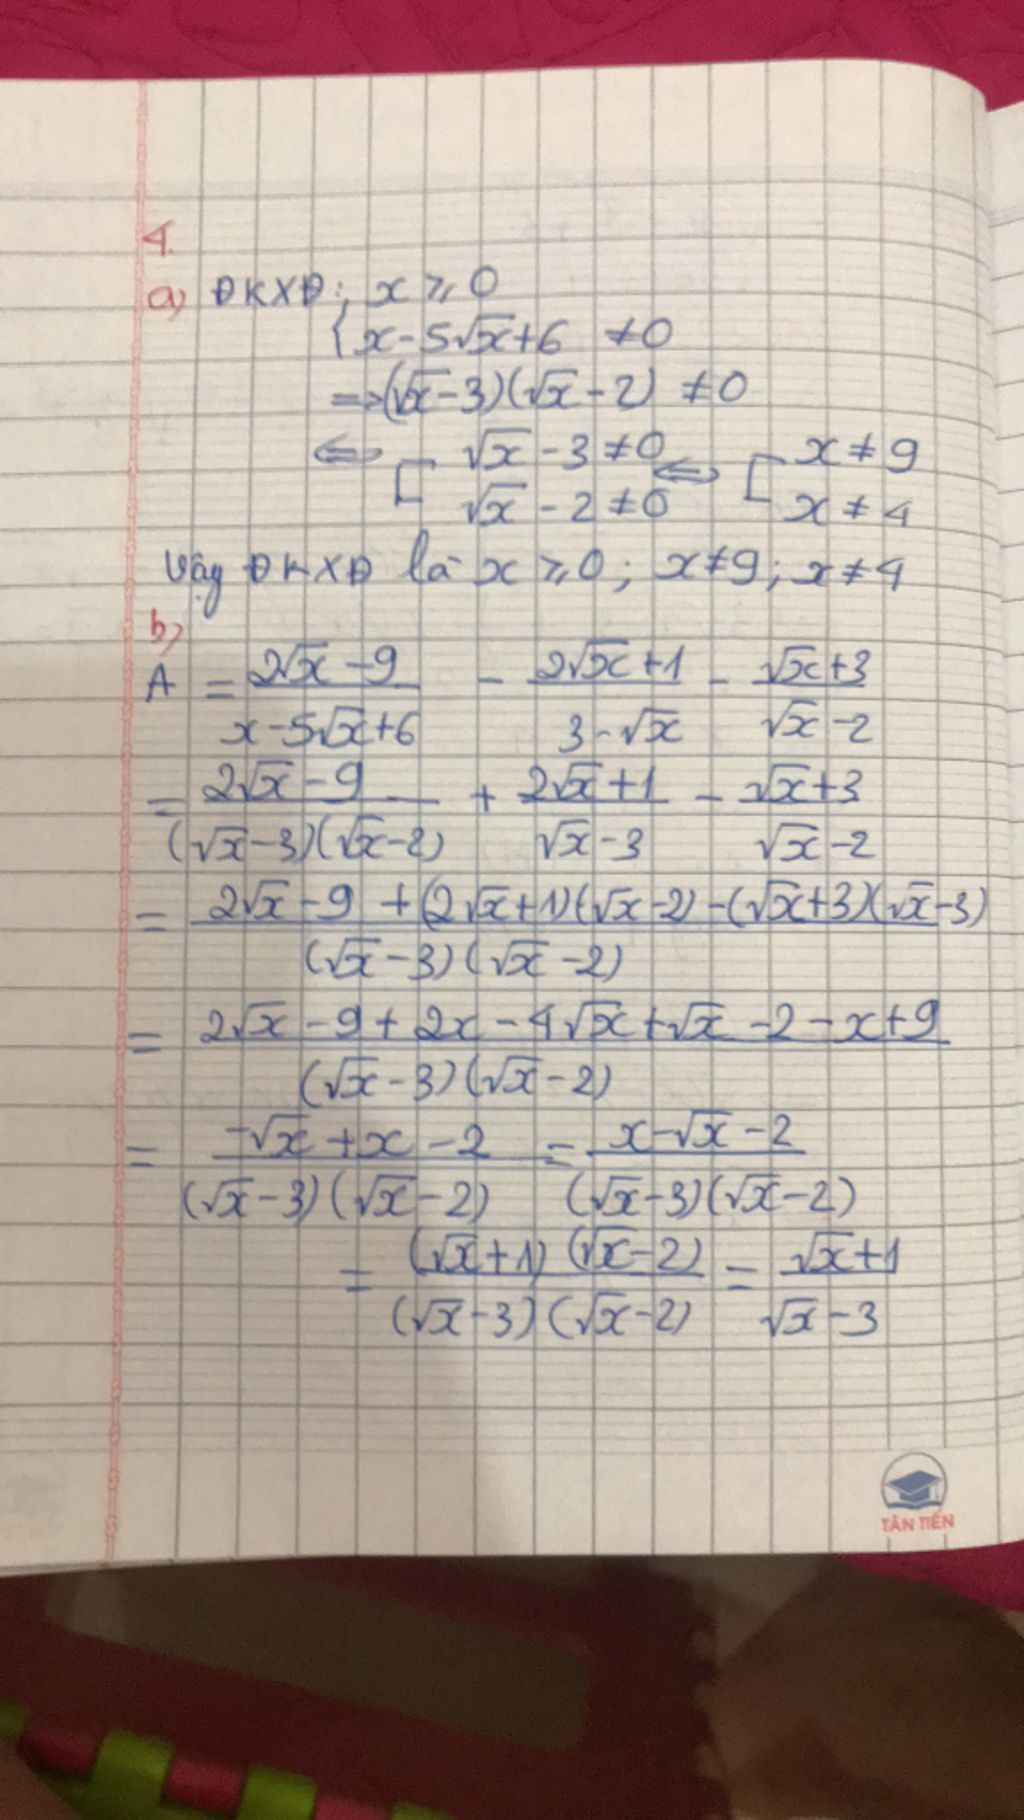 4.
a) ĐKXĐ: x ≥ 0
{ x - 5√x + 6 ≠ 0
=> (√x - 3)(√x - 2) ≠ 0
<=> [ √x - 3 ≠ 0 <=> [ x ≠ 9
√x - 2 ≠ 0 x ≠ 4
Vậy ĐKXĐ là x ≥ 0; x ≠ 9; x ≠ 4
b)
A = (2√x - 9)/(x - 5√x + 6) - (2√x + 1)/(3 - √x) - (√x + 3)/(√x - 2)
= (2√x - 9)/((√x - 3)(√x - 2)) + (2√x + 1)/(√x - 3) - (√x + 3)/(√x - 2)
= (2√x - 9 + (2√x + 1)(√x - 2) - (√x + 3)(√x - 3))/((√x - 3)(√x - 2))
= (2√x - 9 + 2x - 4√x + √x - 2 - x + 9)/((√x - 3)(√x - 2))
= (-√x + x - 2)/((√x - 3)(√x - 2)) = (x - √x - 2)/((√x - 3)(√x - 2))
= ((√x + 1)(√x - 2))/((√x - 3)(√x - 2)) = (√x + 1)/(√x - 3)
TÂN TIẾN